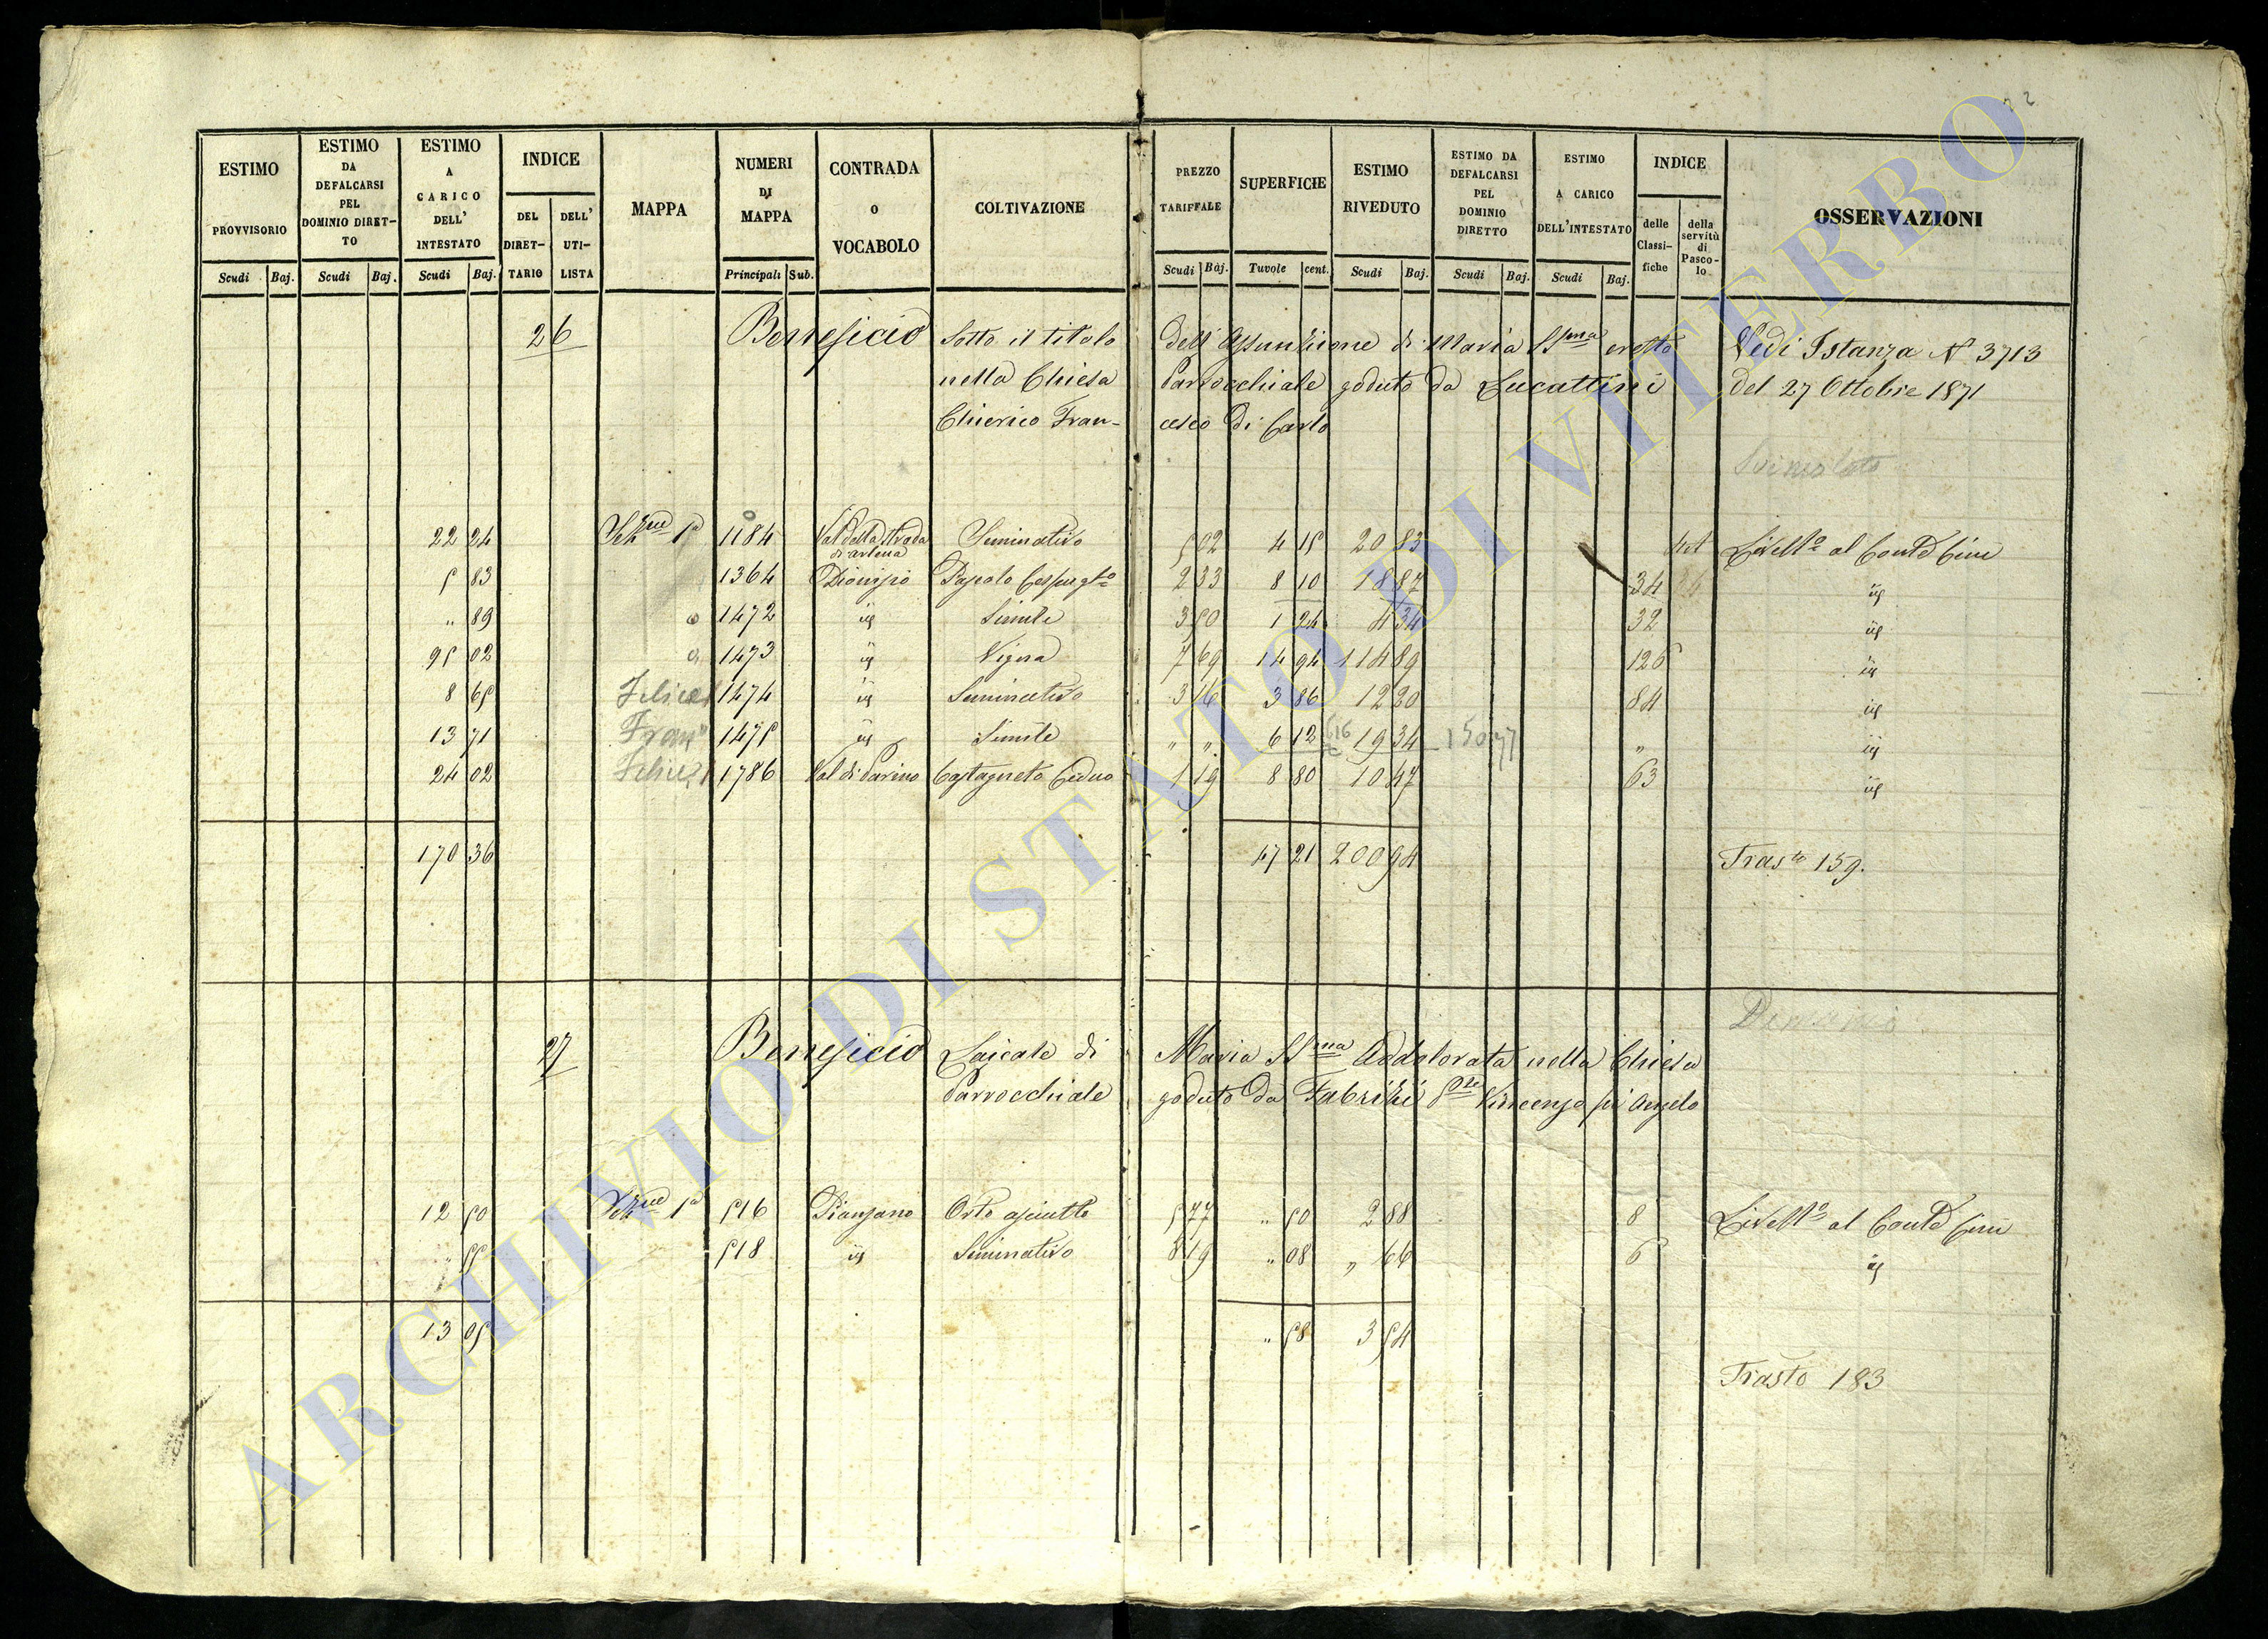 22
ESTIMO PROVVISORIO Scudi Baj.
ESTIMO DA DEFALCARSI PEL DOMINIO DIRETTO Scudi Baj.
ESTIMO A CARICO DELL' INTESTATO Scudi Baj.
INDICE DEL DIRETTARIO DELL' UTILISTA
MAPPA
NUMERI DI MAPPA Principali Sub.
CONTRADA O VOCABOLO
COLTIVAZIONE
PREZZO TARIFFALE Scudi Baj.
SUPERFICIE Tavole cent.
ESTIMO RIVEDUTO Scudi Baj.
ESTIMO DA DEFALCARSI PEL DOMINIO DIRETTO Scudi Baj.
ESTIMO A CARICO DELL'INTESTATO Scudi Baj.
INDICE delle Classifiche della servitù di Pascolo
OSSERVAZIONI
26 Beneficio sotto il titolo dell'Assunzione di Maria SSma eretto Vedi Istanza N 3713
nella Chiesa Parrocchiale goduto da Lucattini del 27 Ottobre 1871
Chierico Francesco di Carlo
Svincolato
22 24 Sezne 1a 1184 Val della Strada di artena Seminativo 5 02 4 15 20 83 Livello al Conte Cini
5 83 1364 Dionisio Pascolo Cespugto 2 33 8 10 18 87 34 id
" 89 1472 id Simile 3 50 1 24 4 34 32 id
95 02 1473 id Vigna 7 69 14 94 114 89 126 id
8 65 1474 id Seminativo 3 16 3 86 12 20 84 id
13 71 1475 id Simile " " 6 12 19 34 " id
24 02 1786 Val di Parino Castagneto Ceduo 1 19 8 80 10 47 63 id
170 36 47 21 200 94 Trasto 159.
Demanio
27 Beneficio Laicale di Maria SSma Addolorata nella Chiesa
Parrocchiale goduto da Fabrizi Vincenzo fu Angelo
12 50 Sezne 1a 516 Pianzano Orto asciutto 5 77 " 50 2 88 8 Livello al Conte Cini
" 55 518 id Seminativo 8 19 " 08 " 66 6 id
13 05 " 58 3 54
Trasto 183
ARCHIVIO DI STATO DI VITERBO